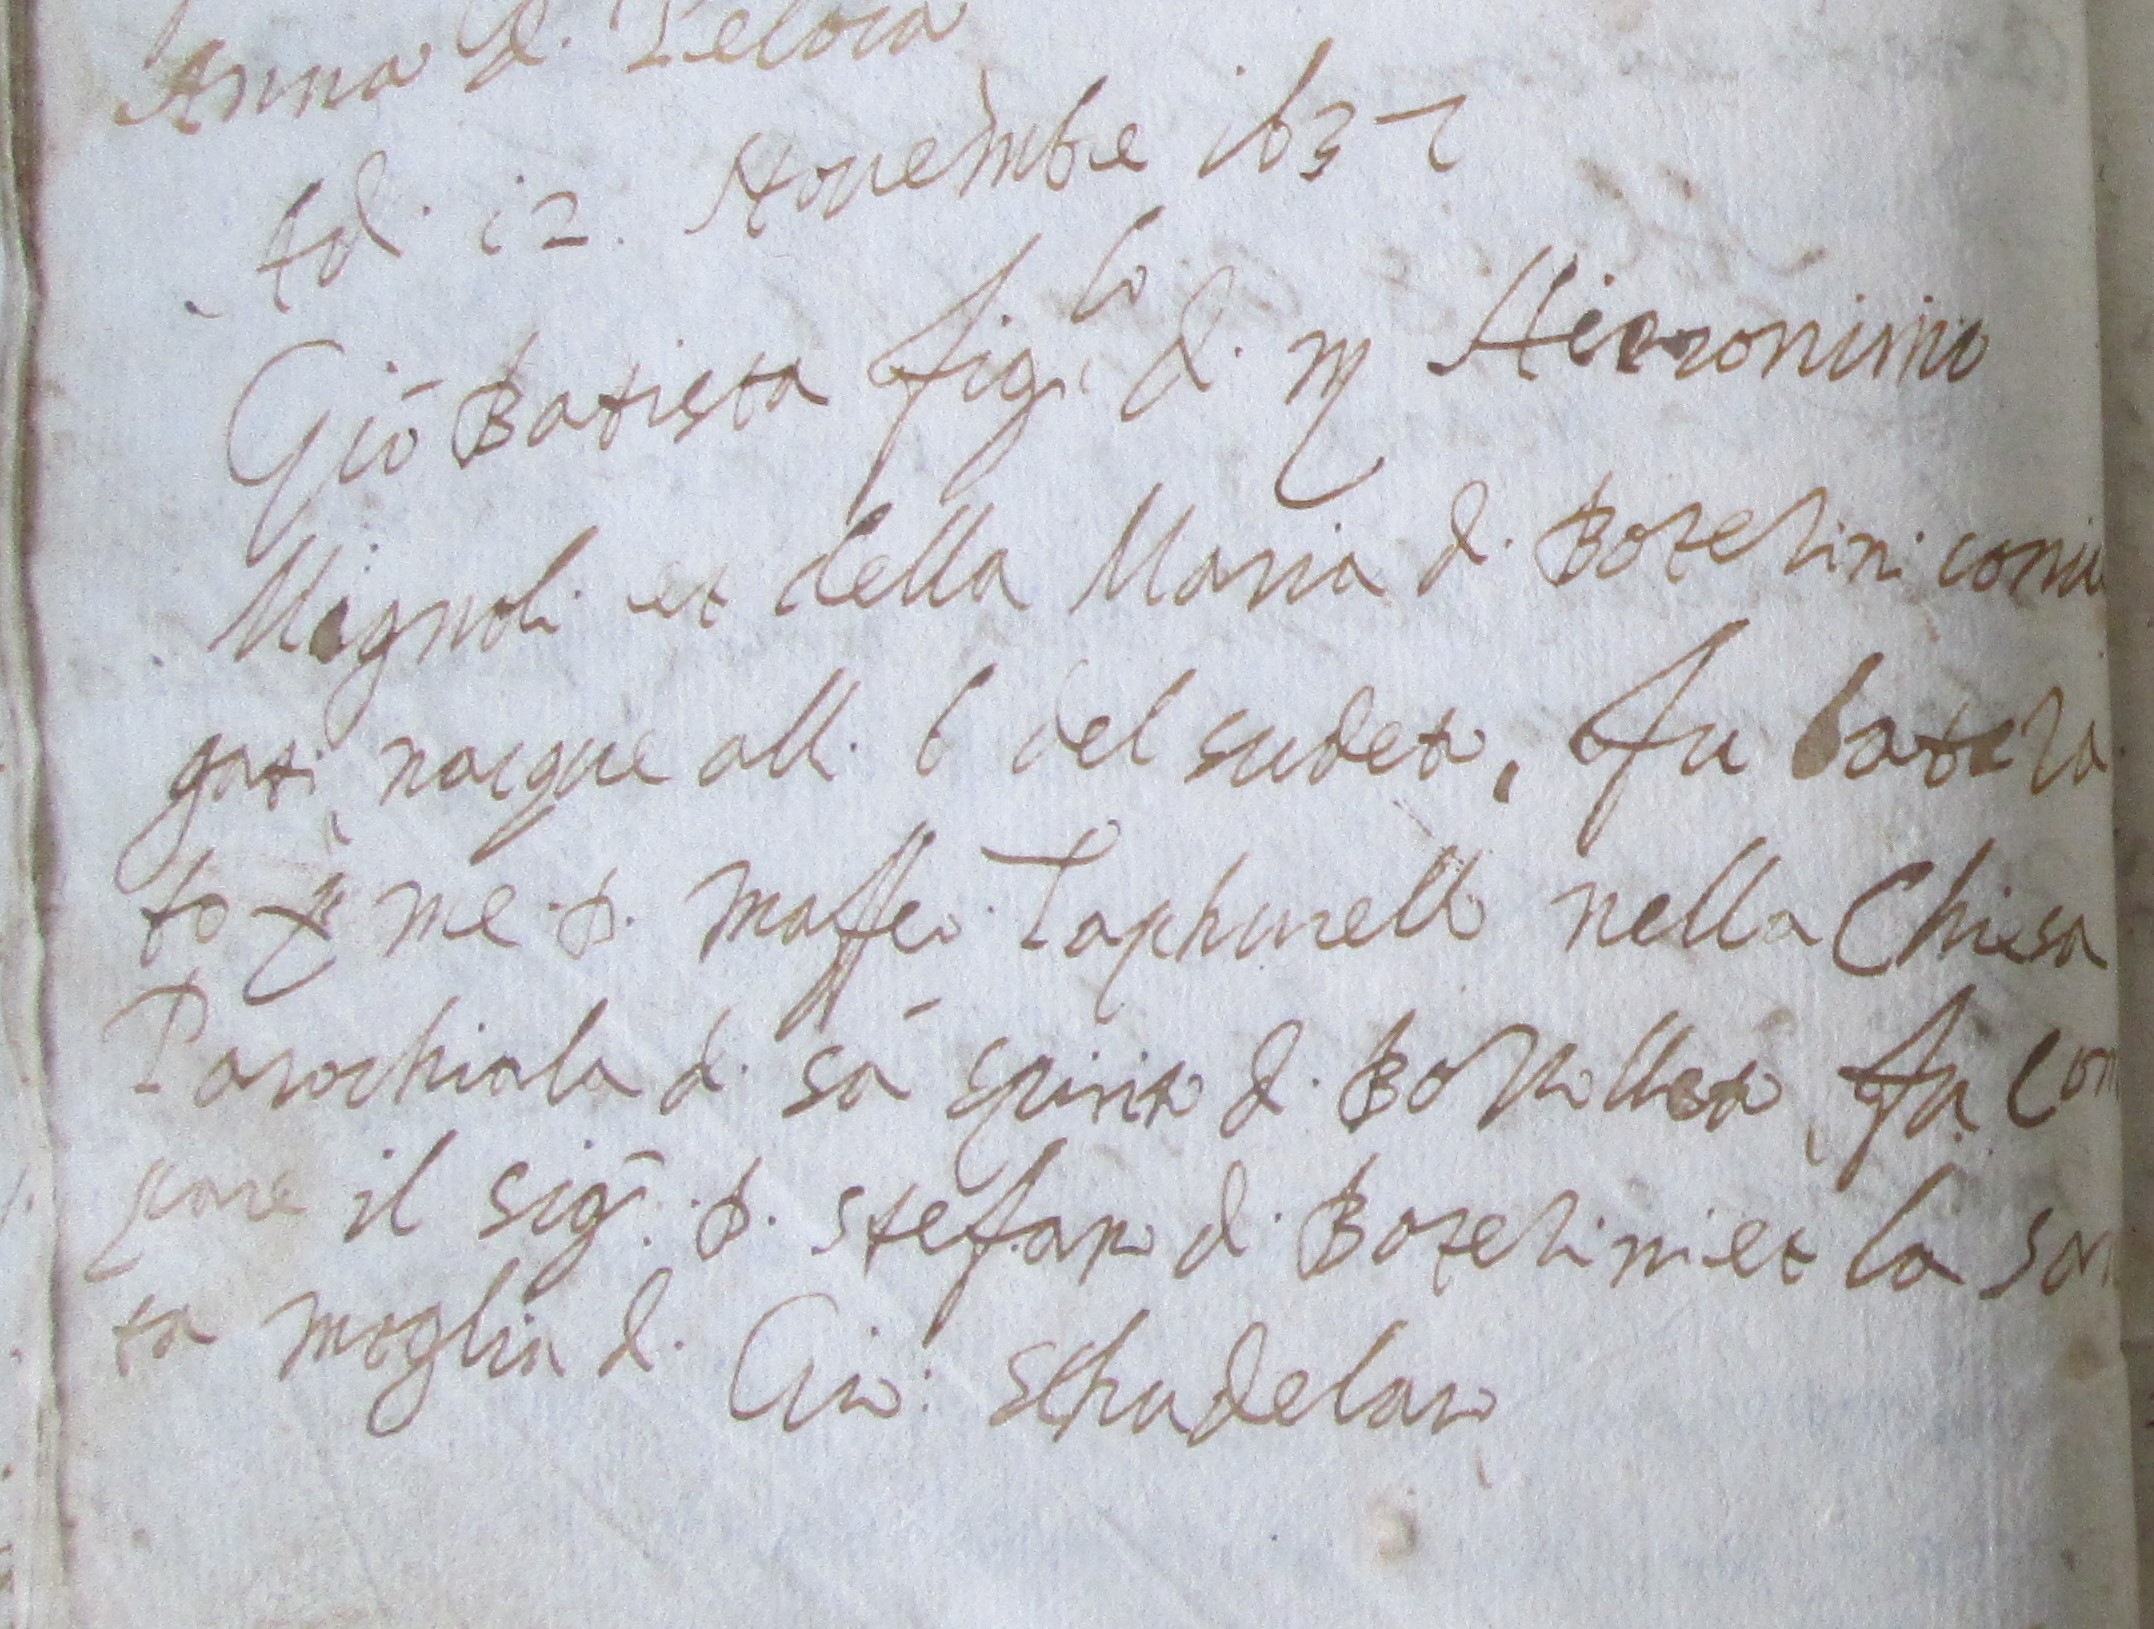 Anna d. Pelora
Ad. i2. Novembre i637
Giō Batista fig.lo d. m Hieronimo
Mignoli et della Maria d. Bozelini coniu
gati, nacque alli 6 del sudeto, fu bateza
to p me p. maffeo Taphurello nella Chiesa
Parochiala d. sā spirito d. fu Com
pare il sigr p. Stefano d. Bozelini et la San
ta moglia d. Gio: Schudelaro